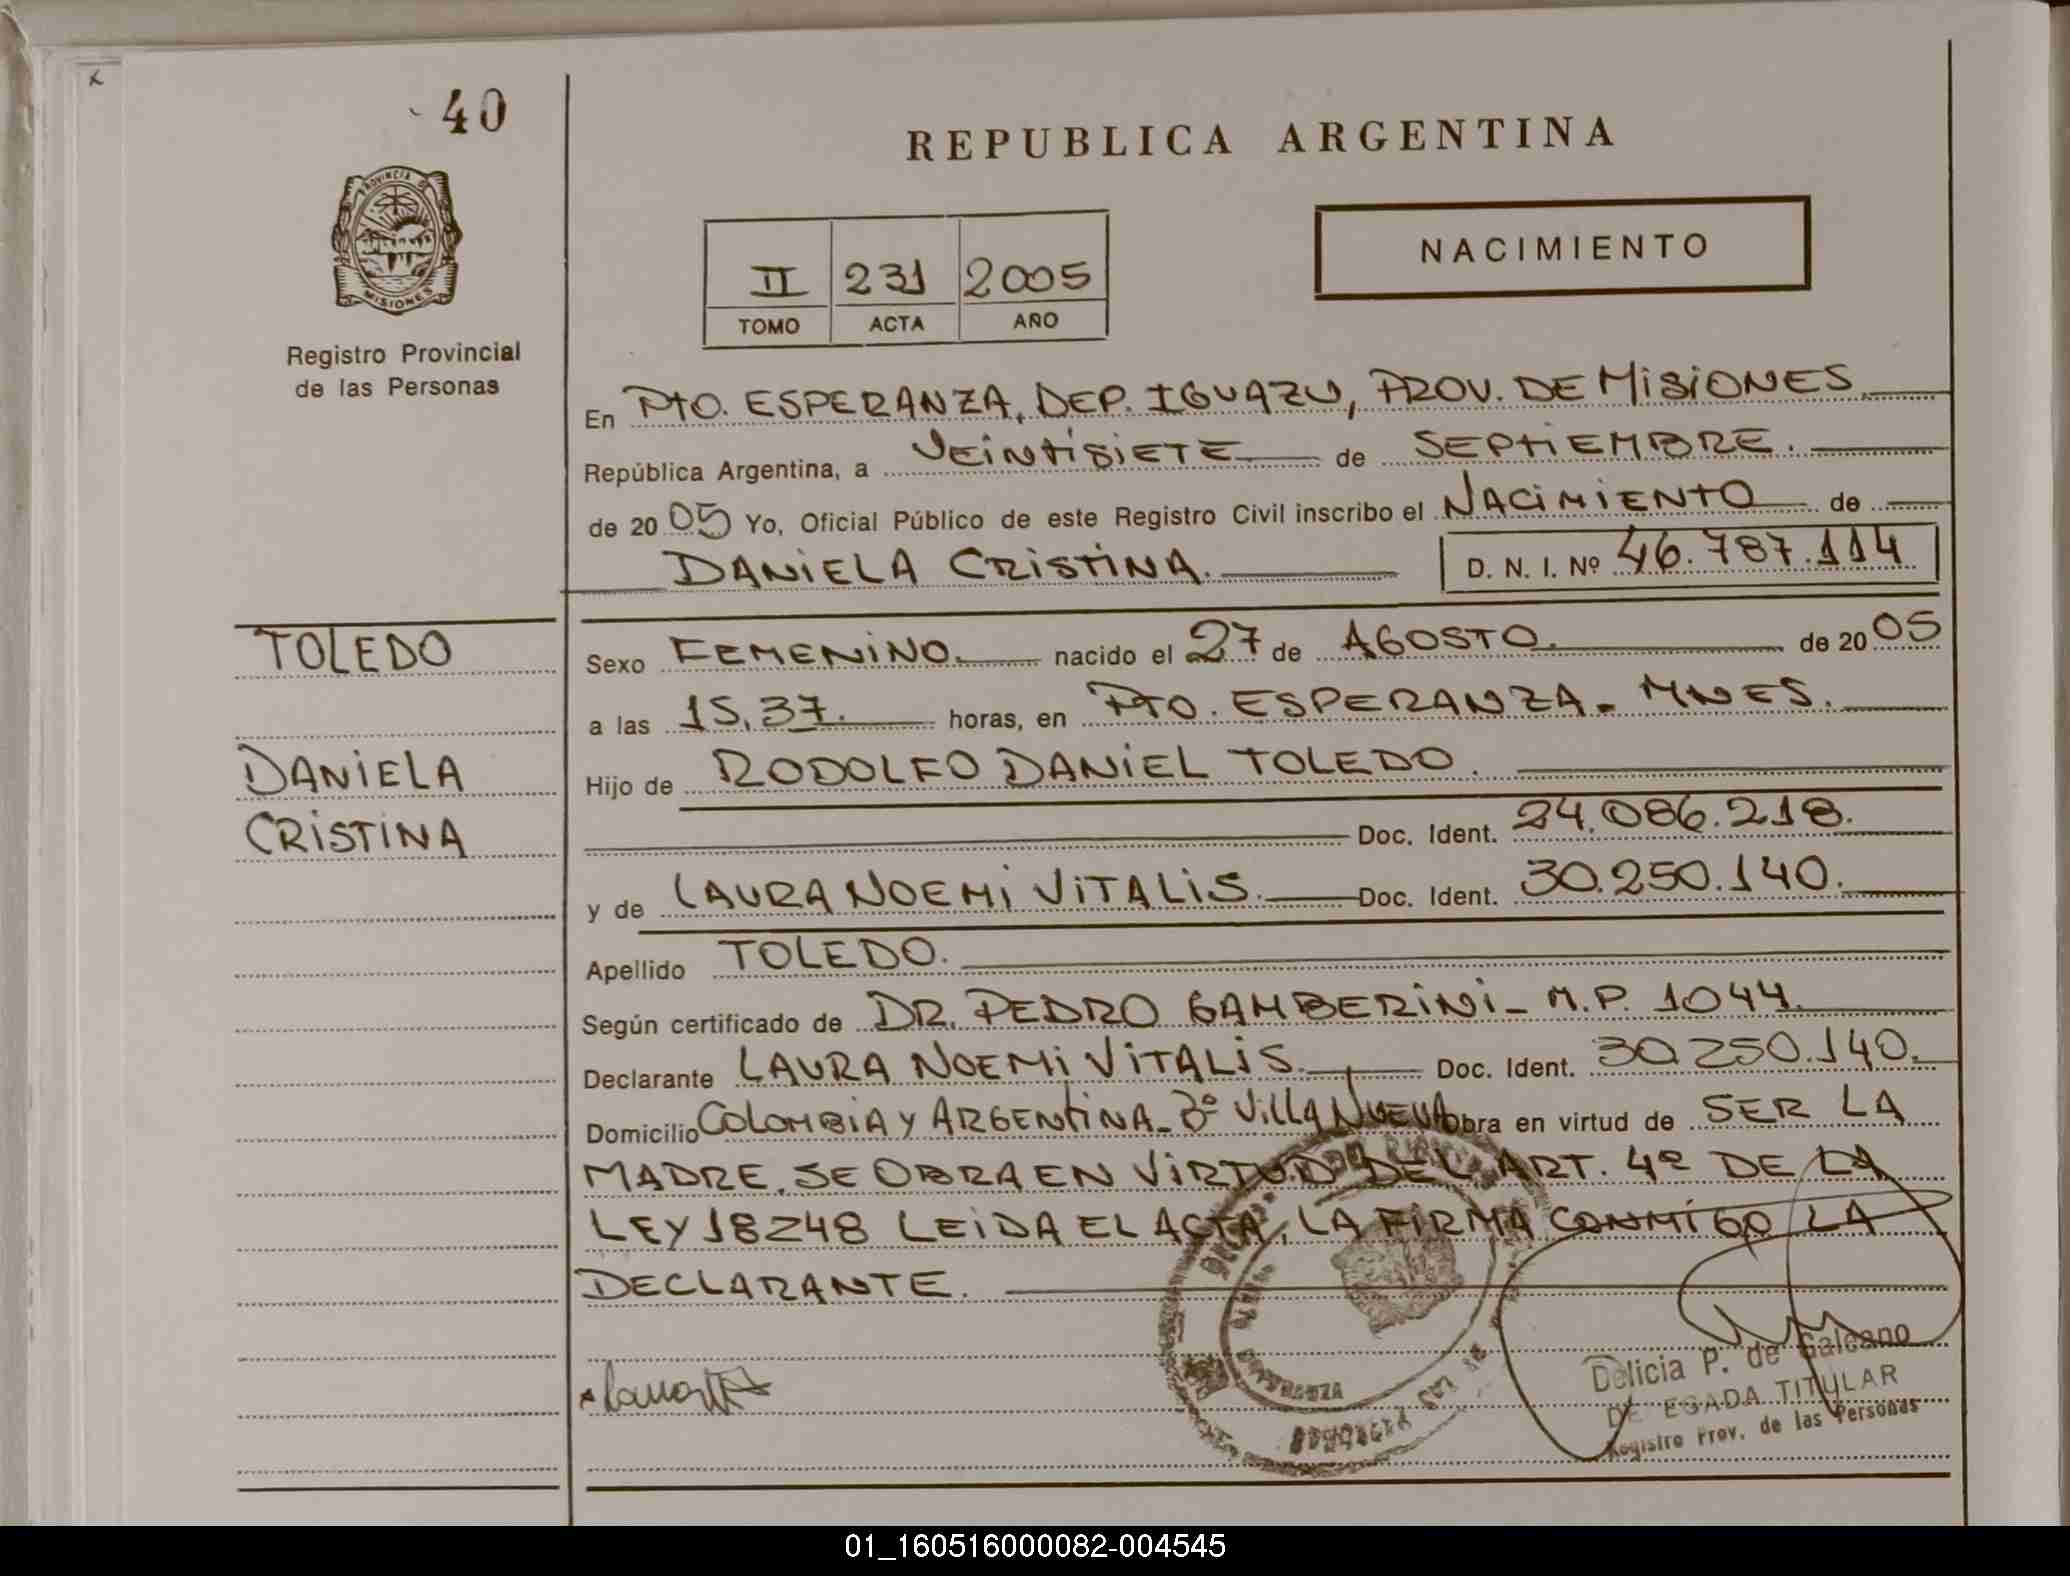 40
REPUBLICA ARGENTINA
PROVINCIA DE
MISIONES
Registro Provincial
de las Personas
NACIMIENTO
II 231 2005
TOMO ACTA AÑO
En PTO. ESPERANZA, DEP. IGUAZU, PROV. DE MISIONES
República Argentina, a VEINTISIETE de SEPTIEMBRE.
de 20 05 Yo, Oficial Público de este Registro Civil inscribo el NACIMIENTO de
DANIELA CRISTINA. D. N. I. Nº 46.787.114
TOLEDO
DANIELA
CRISTINA
Sexo FEMENINO. nacido el 27 de AGOSTO. de 20 05
a las 15.37. horas, en PTO. ESPERANZA - MNES.
Hijo de RODOLFO DANIEL TOLEDO.
Doc. Ident. 24.086.218.
y de LAURA NOEMI VITALIS. Doc. Ident. 30.250.140.
Apellido TOLEDO.
Según certificado de DR. PEDRO GAMBERINI - M.P. 1044.
Declarante LAURA NOEMI VITALIS. Doc. Ident. 30.250.140.
Domicilio COLOMBIA Y ARGENTINA - Bº VILLA NUEVA obra en virtud de SER LA
MADRE. SE OBRA EN VIRTUD DEL ART. 4º DE LA
LEY 18248 LEIDA EL ACTA, LA FIRMA CONMIGO LA
DECLARANTE.
Delicia P. de Galeano
DELEGADA TITULAR
Registro Prov. de las Personas
01_160516000082-004545